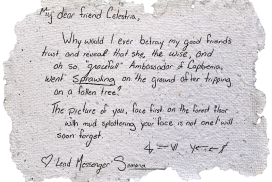 My dear friend Celestia,
Why would I ever betray my good friends
trust and reveal that she, the wise, and
oh so, "graceful" Ambassador of
went Sprawling on the ground after tripping
on a fallen tree?
The picture of you, face first on the forest floor
with mud splattering your face is not one I will
soon forget.
♡ Lead Messenger